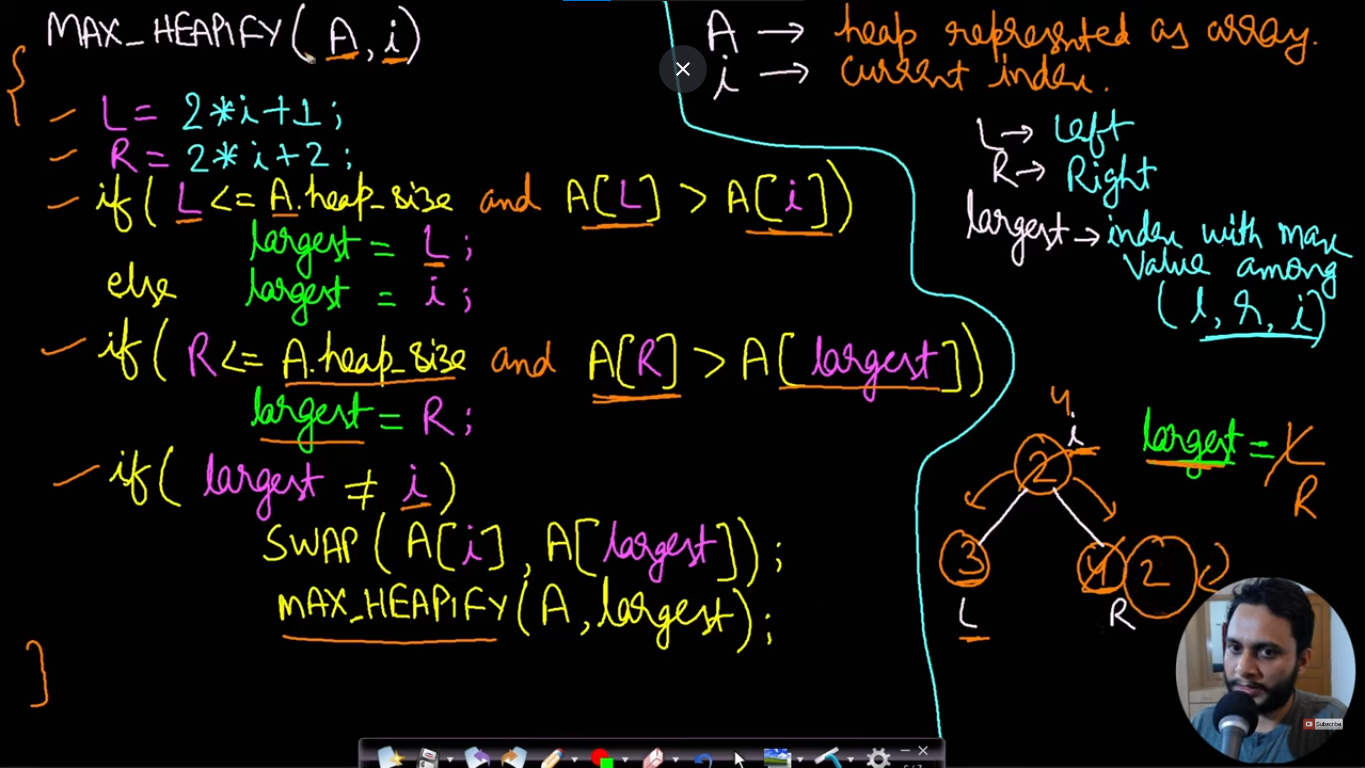 MAX_HEAPIFY(A, i)
{
L = 2*i+1;
R = 2*i+2;
if( L <= A.heap_size and A[L] > A[i])
largest = L;
else largest = i;
if( R <= A.heap_size and A[R] > A[largest])
largest = R;
if( largest ≠ i)
SWAP(A[i], A[largest]);
MAX_HEAPIFY(A, largest);
}
A → heap represented as array.
i → current index.
L → Left
R → Right
largest → index with max
value among
(l, r, i)
4
i
2
largest = L
R
3
4
2
L
R
Subscribe